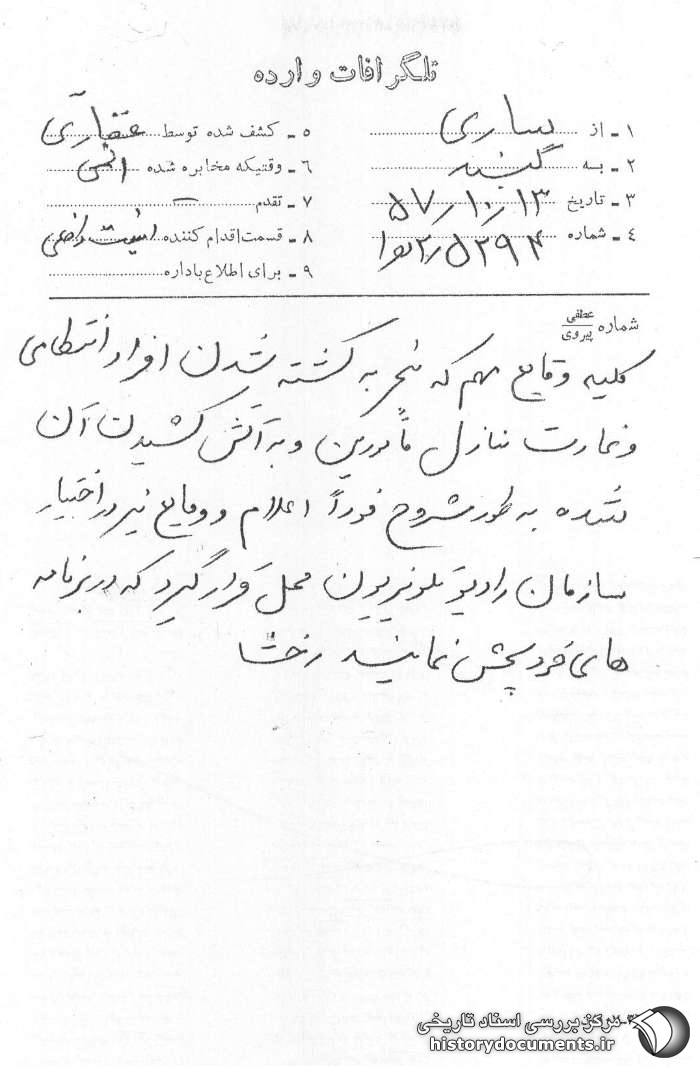 تلگرافات وارده
۱ - از ساری
۲ - به گنبد
۳ - تاریخ ۱۳/۱۰/۵۷
۴ - شماره
۵ - کشف شده توسط
۶ - وقتیکه مخابره شده
۷ - تقدم -
۸ - قسمت اقدام کننده
۹ - برای اطلاع باداره
شماره عطفی پیروی
کلیه وقایع مهم که منجر به کشته شدن افراد انتظامی
و غارت منازل مأمورین و به آتش کشیدن آن
شده به طور مشروح فوراً اعلام و وقایع نیز در اختیار
سازمان رادیو تلویزیون محل قرار گیرد که در برنامه
های خود پخش نمایند
مرکز بررسی اسناد تاریخی
historydocuments.ir